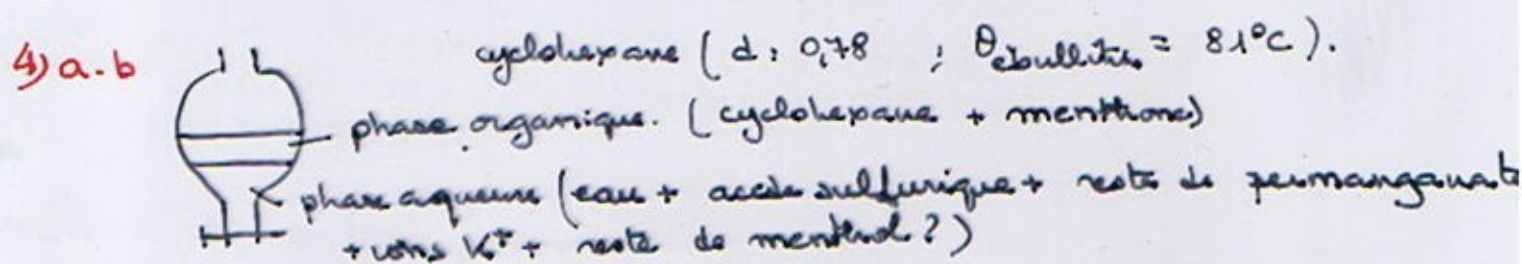 4) a.b
cyclohexane ( d : 0,78 ; θébullition = 81°C ).
phase organique. ( cyclohexane + menthone)
phase aqueuse (eau + acide sulfurique + reste de permanganate
+ ions K⁺ + reste de menthol ? )